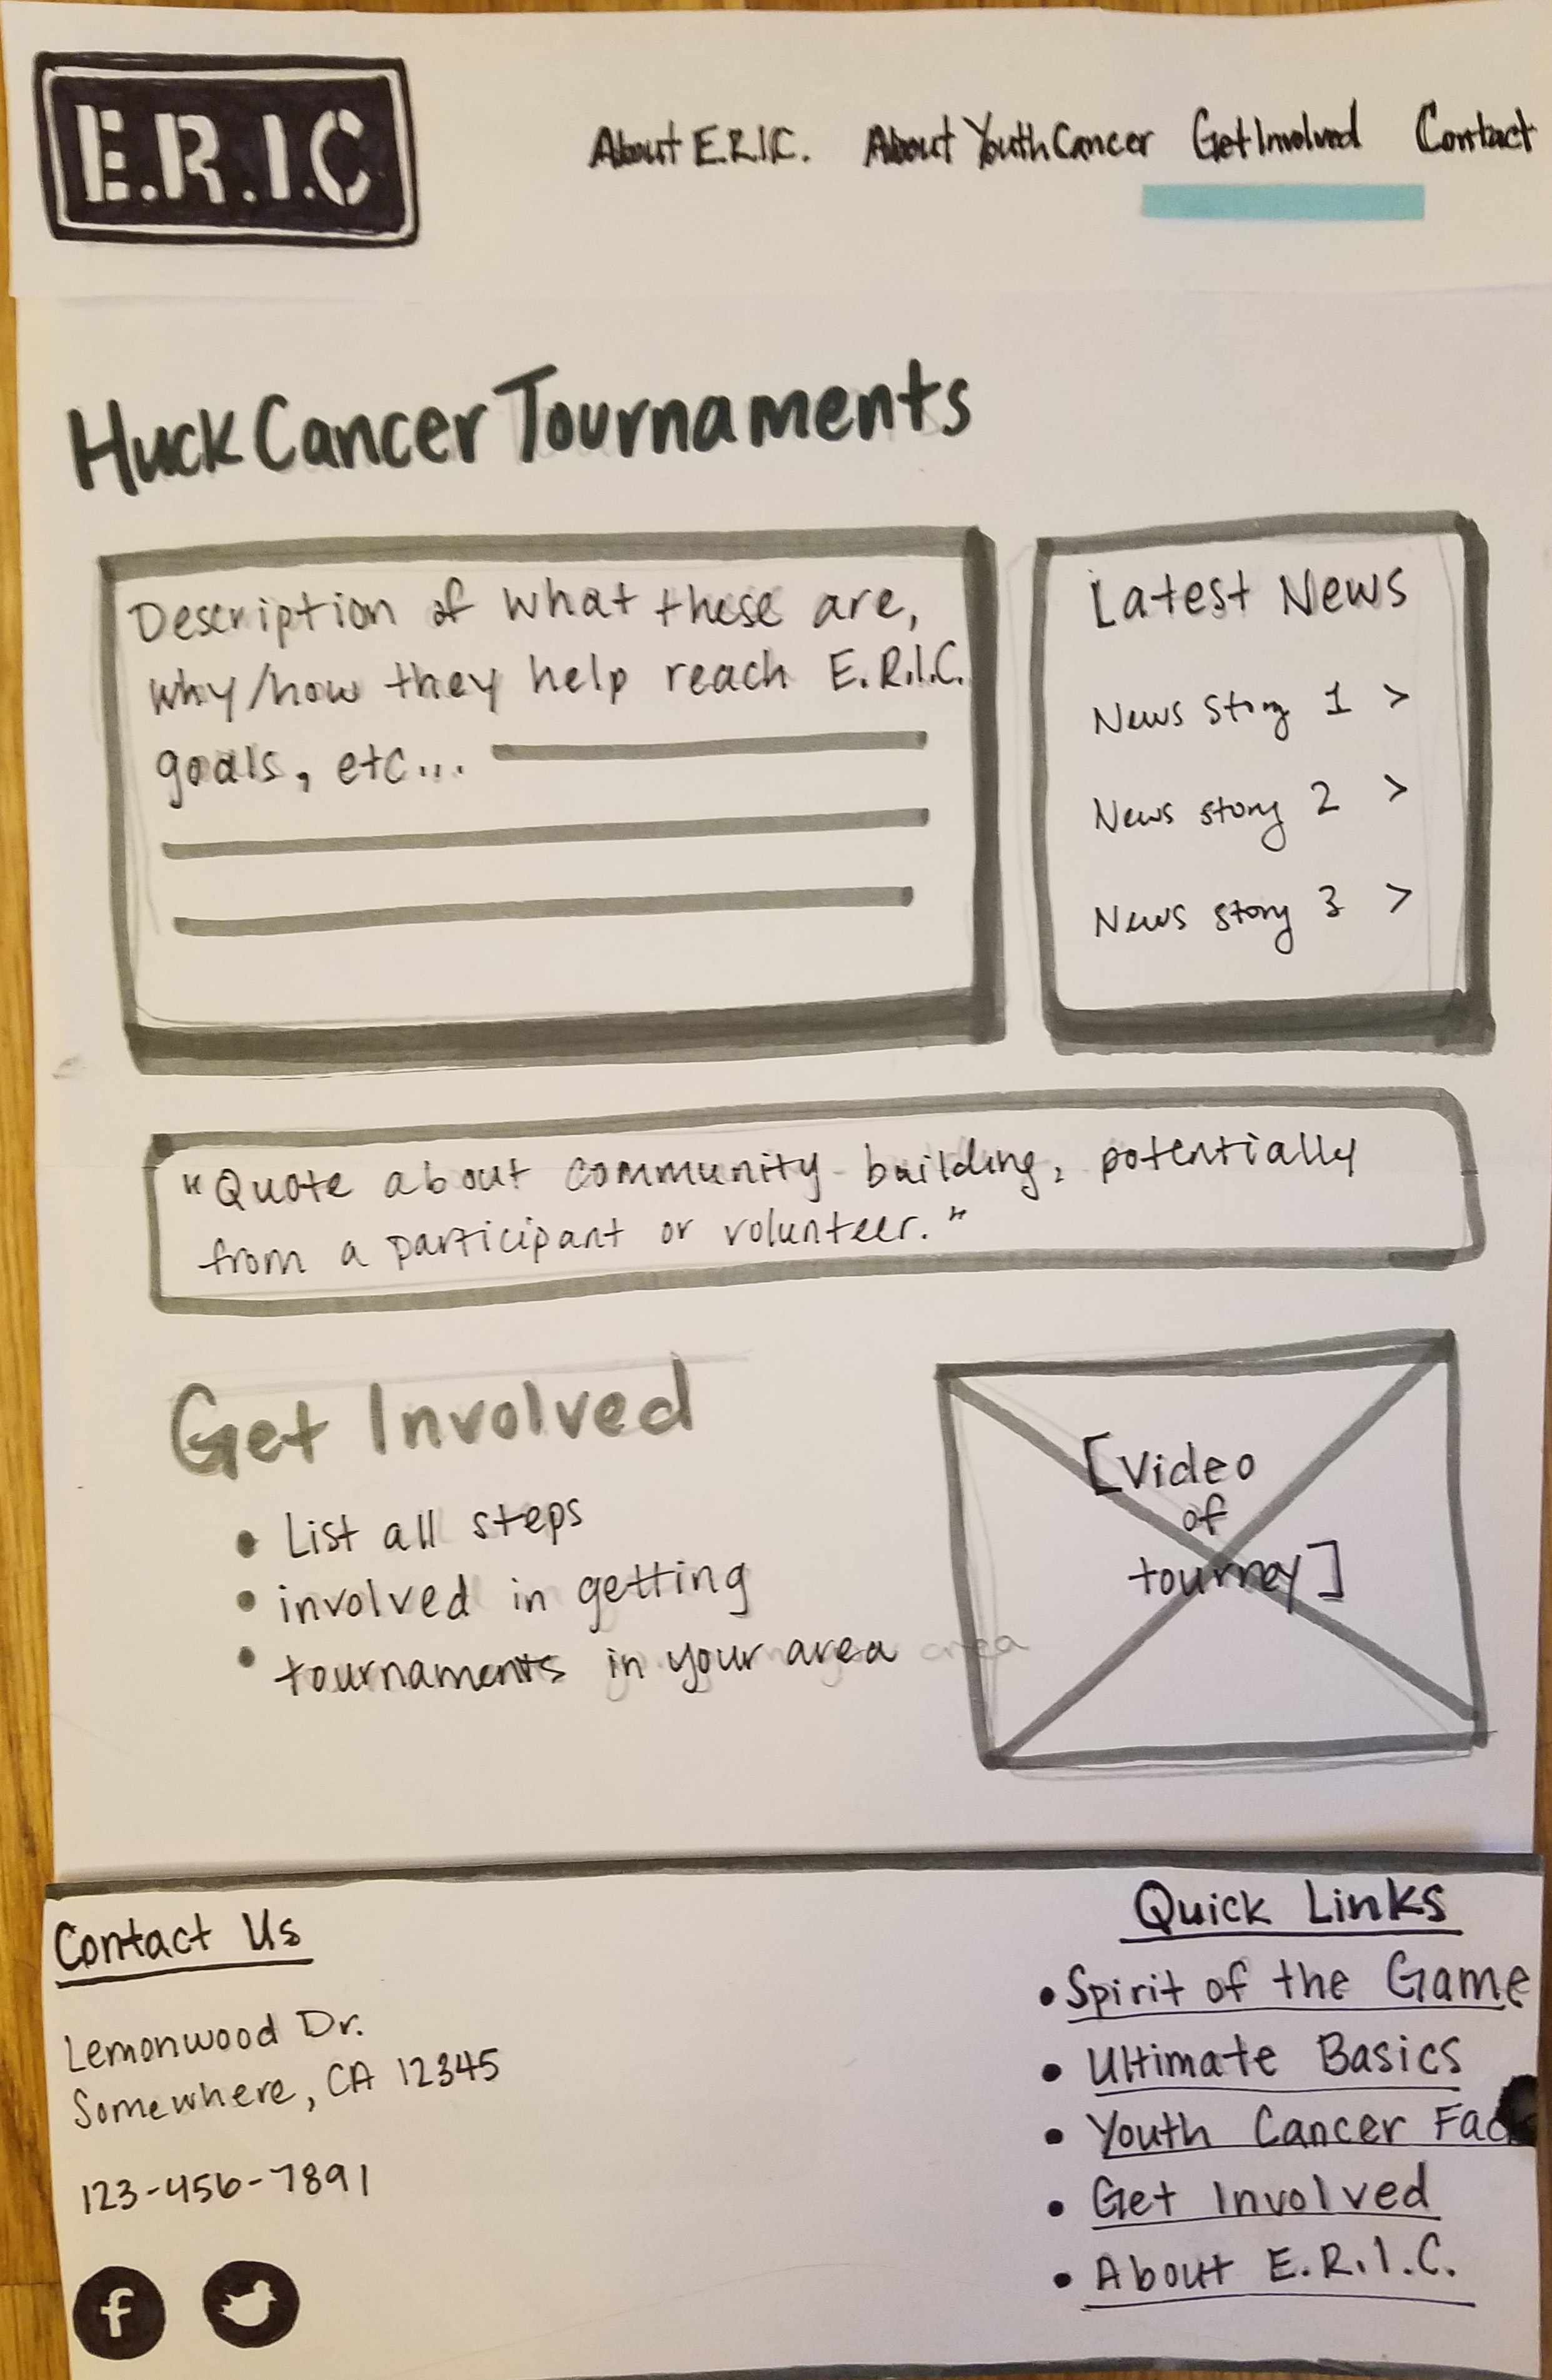 E.R.I.C
About E.R.I.C. About Youth Cancer Get Involved Contact
Huck Cancer Tournaments
Description of what these are,
why/how they help reach E.R.I.C.
goals, etc...
Latest News
News Story 1 >
News story 2 >
News story 3 >
"Quote about community building, potentially
from a participant or volunteer."
Get Involved
• List all steps
• involved in getting
• tournaments in your area area
[Video
of
tourney]
Contact Us
Lemonwood Dr.
Somewhere, CA 12345
123-456-7891
f
Quick Links
• Spirit of the Game
• Ultimate Basics
• Youth Cancer
• Get Involved
• About E.R.I.C.